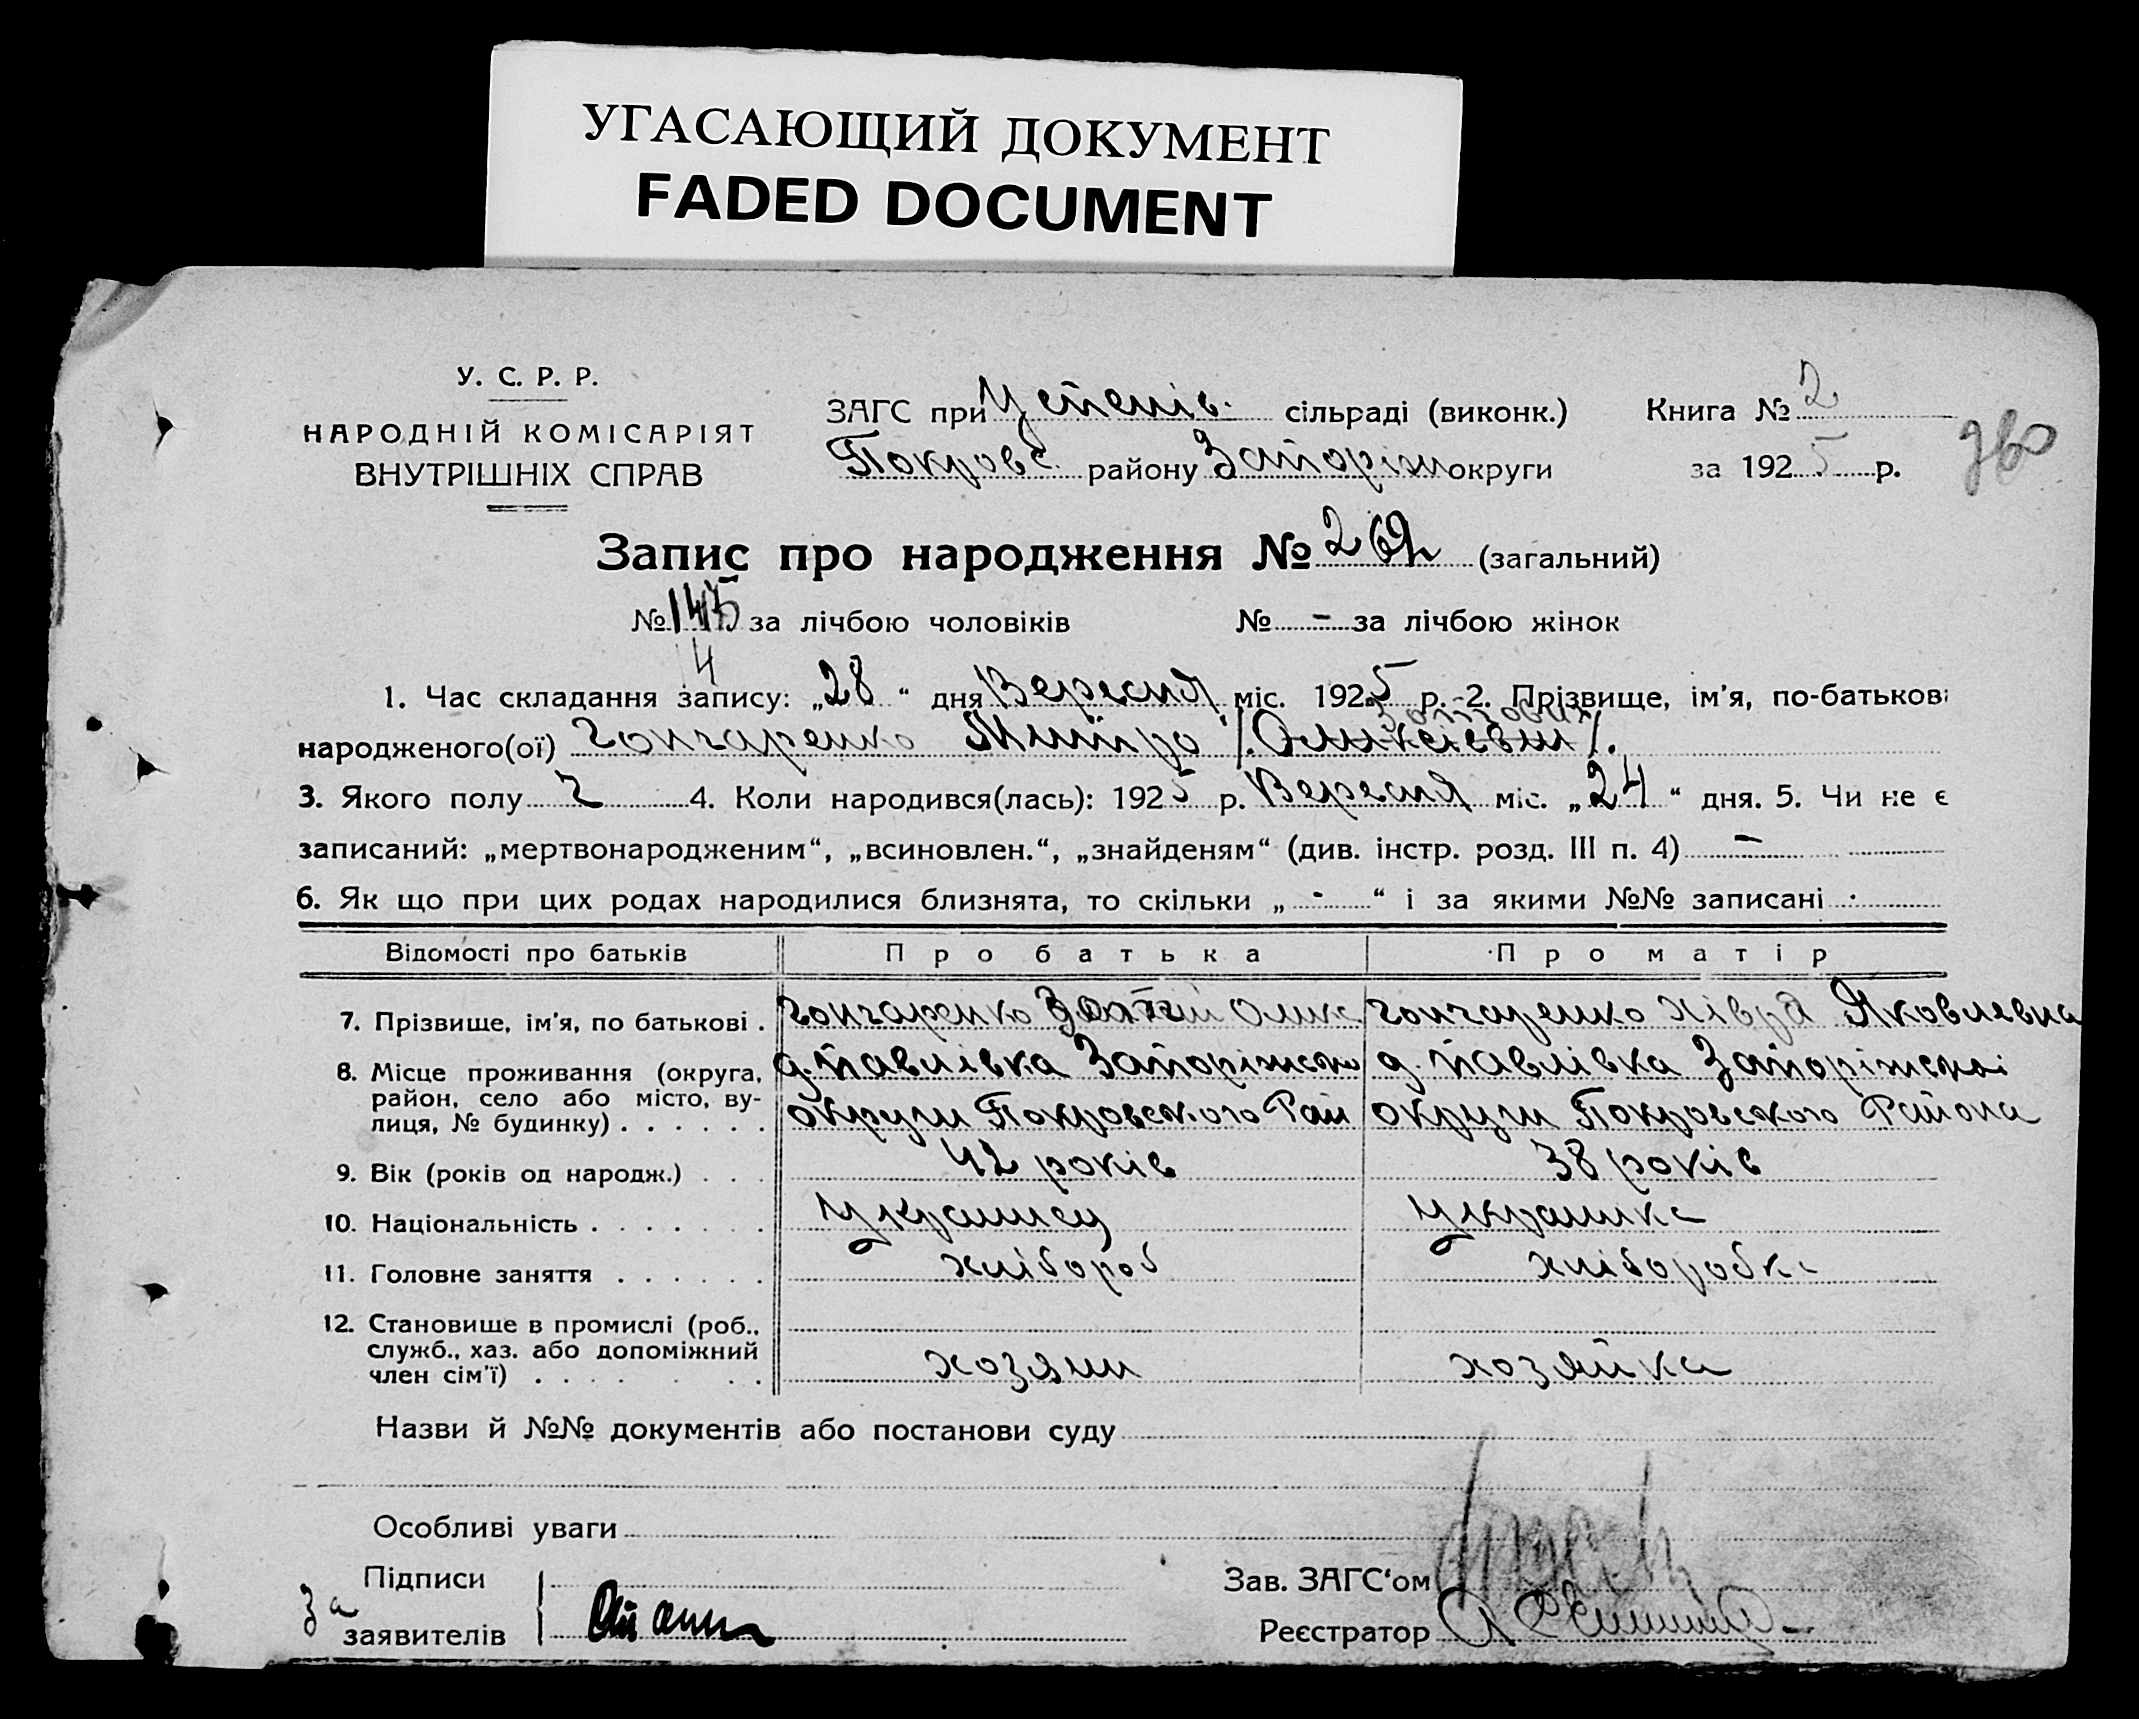 УГАСАЮЩИЙ ДОКУМЕНТ
FADED DOCUMENT
У. С. Р. Р.
НАРОДНІЙ КОМІСАРІЯТ
ВНУТРІШНІХ СПРАВ
ЗАГС при Успенів. сільраді (виконк.)
Покровс. району Запоріж округи
Книга № 2
за 1925 р.
Запис про народження № (загальний)
№ 145 за лічбою чоловіків № - за лічбою жінок
4
1. Час складання запису: „28“ дня Вересня міс. 1925 р. 2. Прізвище, ім'я, по-батькові
народженого(ої) Гончаренко Митро
3. Якого полу ч 4. Коли народився(лась): 1925 р. Вересня міс. „24“ дня. 5. Чи не є
записаний: „мертвонародженим“, „всиновлен.“, „знайденям“ (див. інстр. розд. III п. 4) -
6. Як що при цих родах народилися близнята, то скільки „ - “ і за якими №№ записані
Відомості про батьків Про батька Про матір
7. Прізвище, ім'я, по батькові . Гончаренко Оликс Гончаренко Хівря Яковлевна
8. Місце проживання (округа, д. Павлівка Запоріжської д. Павлівка Запоріжської
район, село або місто, ву-
лиця, № будинку) . . . . . . округи Покровського Рай округи Покровського Района
9. Вік (років од народж.) . . . 42 років 38 років
10. Національність . . . . . . . Украинец Украинка
11. Головне заняття . . . . . . хлібороб хліборобка
12. Становище в промислі (роб.,
служб., хаз. або допоміжний
член сім'ї) . . . . . . . хозяин хозяйка
Назви й №№ документів або постанови суду
Особливі уваги
Підписи
За заявителів
Зав. ЗАГС'ом
Реєстратор